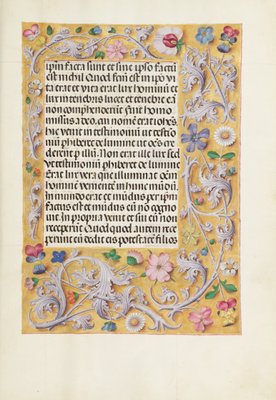 ipm facta sunt et sine ipso factū
est nichil Quod fcm̄ est in ipo vi
ta erat et vita erat lux hominū et
lux in tenebris lucet et tenebre eā
non comprehenderūt fuit homo
missus a deo, cui nomē erat iohēs
hic venit in testimoniū ut testimo
niū phiberet de lumine ut oēs cre
derent p illū. Non erat ille lux sed
ut testimoniū phiberet de lumine
Erat lux vera que illuminat omnē
hominē veniente in hunc mūdū.
In mundo erat et mūdus per ipm̄
factus est et mūdus eū no cogno
uit. In propria venit et sui eū non
receperūt Quotquot autem rece
perunt eū dedit eis potestatē filios